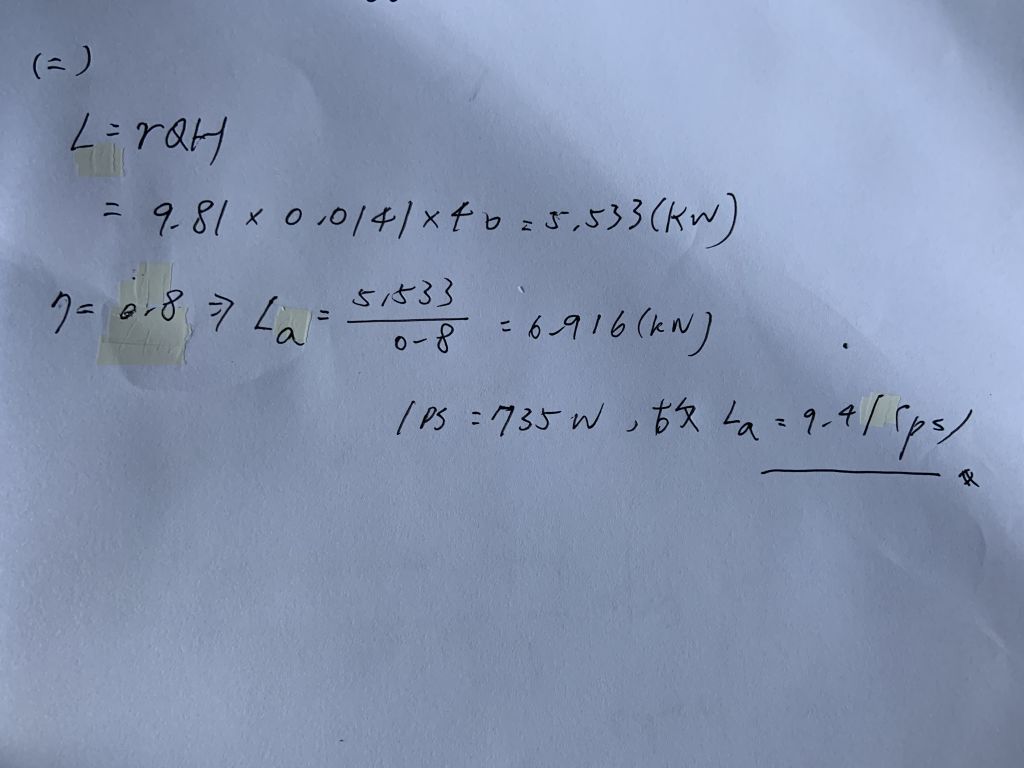 (二)
L = rQH
= 9.81 × 0.0141 × 40 = 5.533 (KW)
η = 0.8 ⇒ La = 5.533 / 0.8 = 6.916 (kW)
1 PS = 735 W , 故 La = 9.41 (ps) #